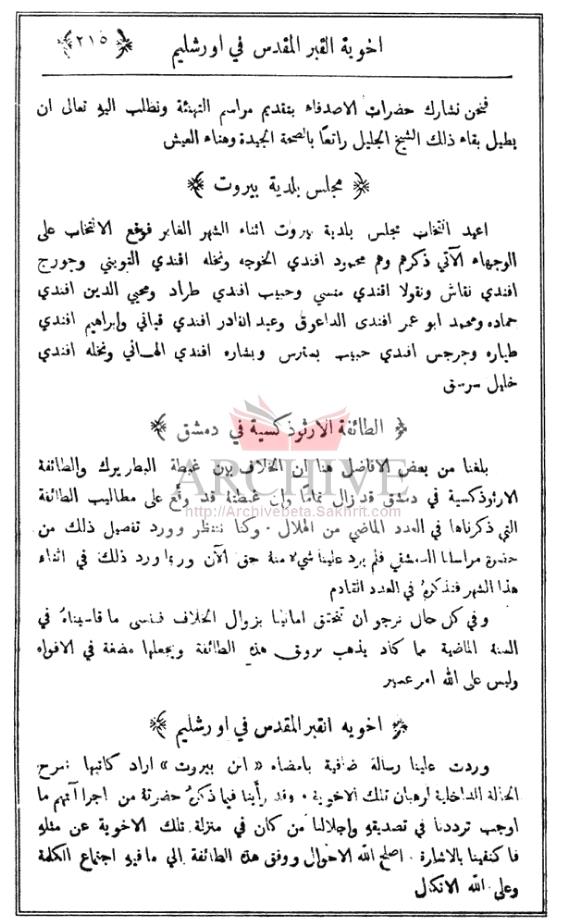 اخوية القبر المقدس في اورشليم ﴿٢١٥﴾
فنحن نشارك حضرات الاصدقاء بتقديم مراسم التهنئة ونطلب اليهِ تعالى ان
يطيل بقاء ذلك الشيخ الجليل راتعًا بالصحة الجيدة وهناء العيش
﴿ مجلس بلدية بيروت ﴾
اعيد انتخاب مجلس بلدية بيروت اثناء الشهر الغابر فوقع الانتخاب على
الوجهاء الآتي ذكرهم وهم محمود افندي الخوجه ونخله افندي التويني وجورج
افندي نقاش ونقولا افندي منسي وحبيب افندي طراد ومحيي الدين افندي
حماده ومحمد ابو عمر افندى الداعوق وعبد القادر افندي قباني وابراهيم افندي
طباره وجرجس افندي حبيب بسترس وبشاره افندي الهاني ونخله افندي
خليل سرسق
﴿ الطائفة الارثوذكسية في دمشق ﴾
بلغنا من بعض الافاضل هنا ان الخلاف بين غبطة البطريرك والطائفة
الارثوذكسية في دمشق قد زال تمامًا وان غبطته قد وقّع على مطاليب الطائفة
ARCHIVE
http://Archivebeta.Sakhrit.com
التي ذكرناها في العدد الماضي من الهلال . وكنا ننتظر ورود تفصيل ذلك من
حضرة مراسلنا الدمشقي فلم يرد علينا شيء منهُ حتى الآن وربما ورد ذلك في اثناء
هذا الشهر فنذكرهُ في العدد القادم
وفي كل حال نرجو ان تتحقق امانينا بزوال الخلاف فننسى ما قاسيناهُ في
السنة الماضية مما كاد يذهب برونق هذه الطائفة ويجعلها مضغة في الافواه
وليس على الله امر عسير
﴿ اخوية القبر المقدس في اورشليم ﴾
وردت علينا رسالة ضافية بامضاء « ابن بيروت » اراد كاتبها شرح
الحالة الداخلية لرهبان تلك الاخوية . وقد رأينا فيما ذكرهُ حضرتهُ من اجرا آتهم ما
اوجب ترددنا في تصديقهِ واجلالنا من كان في منزلة تلك الاخوية عن مثلهِ
فاكتفينا بالاشارة . اصلح الله الاحوال ووفق هذه الطائفة الى ما فيهِ اجتماع الكلمة
وعلى الله الاتكال